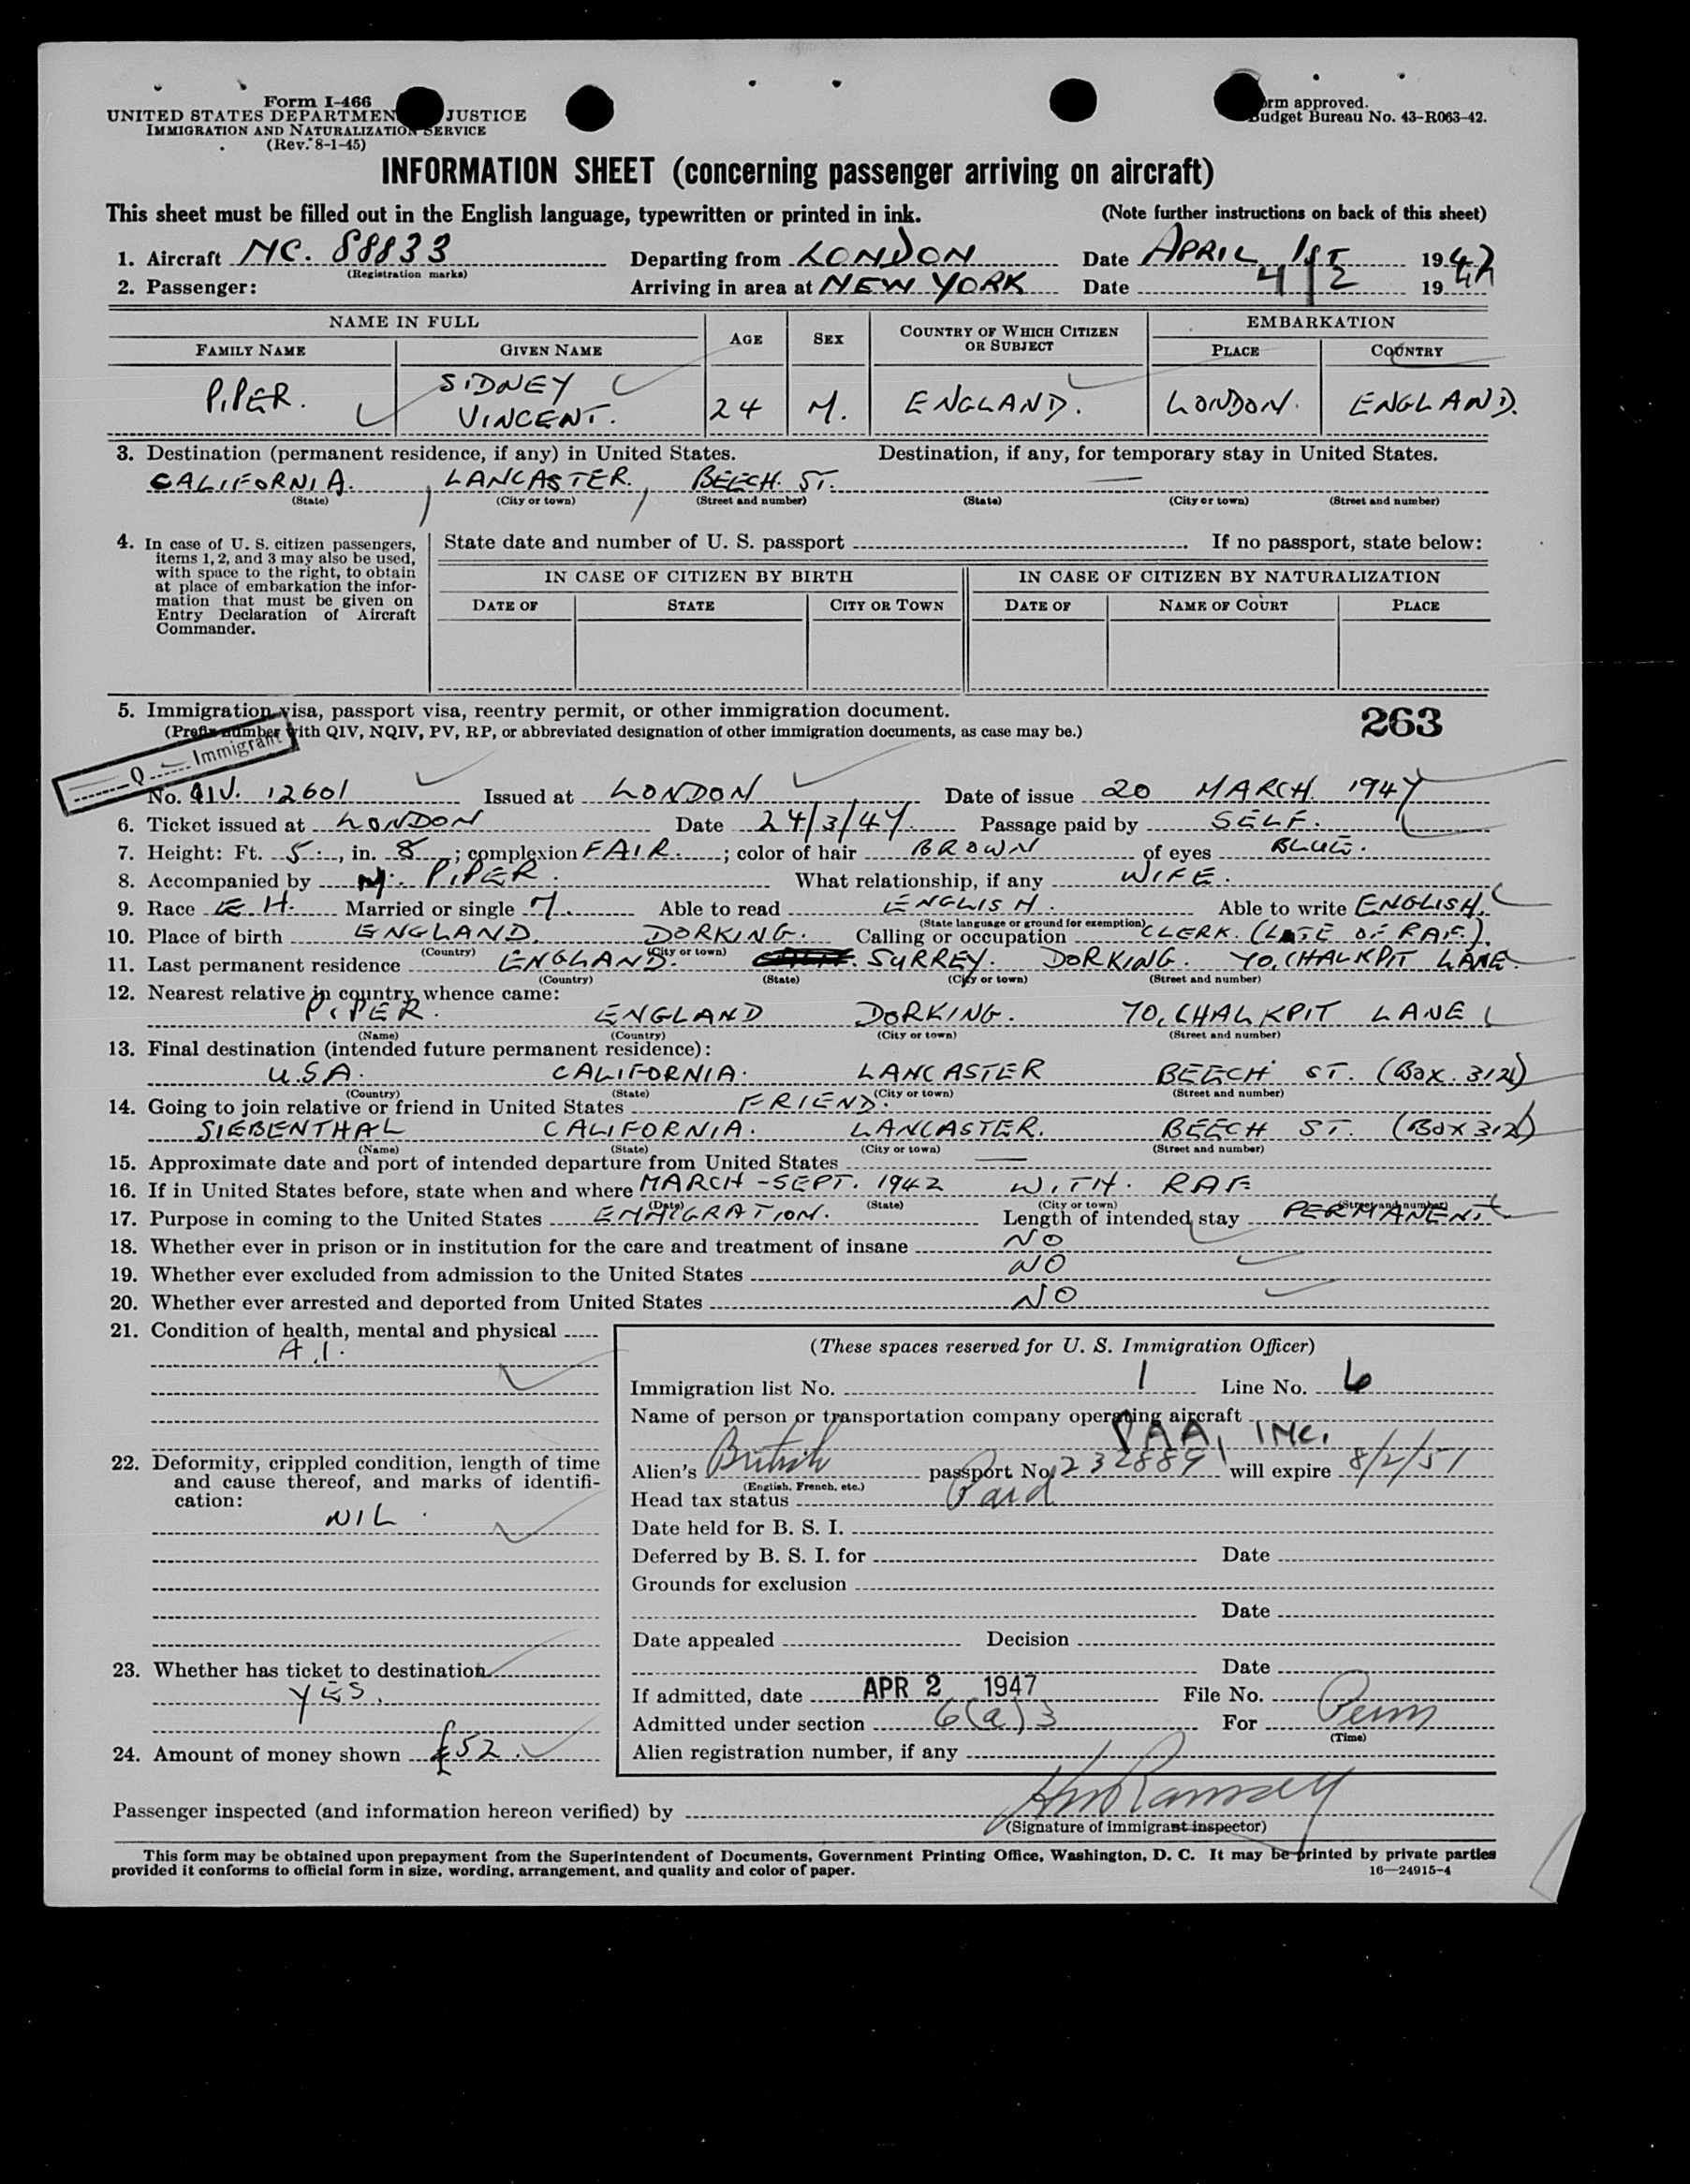 Form I-466
UNITED STATES DEPARTMEN JUSTICE
IMMIGRATION AND NATURALIZATION SERVICE
(Rev. 8-1-45)
rm approved.
Budget Bureau No. 43-R063-42.
INFORMATION SHEET (concerning passenger arriving on aircraft)
This sheet must be filled out in the English language, typewritten or printed in ink. (Note further instructions on back of this sheet)
1. Aircraft NC. 88833 Departing from LONDON Date APRIL 1ST 1947
(Registration marks)
2. Passenger: Arriving in area at NEW YORK Date 4/2 1947
NAME IN FULL AGE SEX COUNTRY OF WHICH CITIZEN OR SUBJECT EMBARKATION
FAMILY NAME GIVEN NAME PLACE COUNTRY
PIPER. SIDNEY VINCENT. 24 M. ENGLAND. LONDON. ENGLAND.
3. Destination (permanent residence, if any) in United States. Destination, if any, for temporary stay in United States.
CALIFORNIA. LANCASTER. BEECH. ST. —
(State) (City or town) (Street and number) (State) (City or town) (Street and number)
4. In case of U. S. citizen passengers, items 1, 2, and 3 may also be used, with space to the right, to obtain at place of embarkation the information that must be given on Entry Declaration of Aircraft Commander.
State date and number of U. S. passport If no passport, state below:
IN CASE OF CITIZEN BY BIRTH IN CASE OF CITIZEN BY NATURALIZATION
DATE OF STATE CITY OR TOWN DATE OF NAME OF COURT PLACE
5. Immigration visa, passport visa, reentry permit, or other immigration document. 263
(Prefix number with QIV, NQIV, PV, RP, or abbreviated designation of other immigration documents, as case may be.)
Q Immigrant
No. QIV. 12601 Issued at LONDON Date of issue 20 MARCH 1947
6. Ticket issued at LONDON Date 24/3/47. Passage paid by SELF.
7. Height: Ft. 5, in. 8; complexion FAIR.; color of hair BROWN of eyes BLUE.
8. Accompanied by M. PIPER. What relationship, if any WIFE.
9. Race E H. Married or single M. Able to read ENGLISH. Able to write ENGLISH.
(State language or ground for exemption)
10. Place of birth ENGLAND. DORKING. Calling or occupation CLERK. (LATE OF RAF.).
(Country) (City or town)
11. Last permanent residence ENGLAND. SURREY. DORKING. 70, CHALKPIT LANE
(Country) (State) (City or town) (Street and number)
12. Nearest relative in country whence came:
PIPER. ENGLAND DORKING. 70, CHALKPIT LANE
(Name) (Country) (City or town) (Street and number)
13. Final destination (intended future permanent residence):
U.S.A. CALIFORNIA. LANCASTER BEECH ST. (Box. 312)
(Country) (State) (City or town) (Street and number)
14. Going to join relative or friend in United States FRIEND.
SIEBENTHAL CALIFORNIA. LANCASTER. BEECH ST. (Box 312)
(Name) (State) (City or town) (Street and number)
15. Approximate date and port of intended departure from United States —
16. If in United States before, state when and where MARCH - SEPT. 1942 WITH. RAF
(Date) (State) (City or town) (Street and number)
17. Purpose in coming to the United States EMMIGRATION. Length of intended stay PERMANENT
18. Whether ever in prison or in institution for the care and treatment of insane NO
19. Whether ever excluded from admission to the United States NO
20. Whether ever arrested and deported from United States NO
21. Condition of health, mental and physical
A.1.
22. Deformity, crippled condition, length of time and cause thereof, and marks of identification:
NIL.
23. Whether has ticket to destination
YES.
24. Amount of money shown £52.
(These spaces reserved for U. S. Immigration Officer)
Immigration list No. 1 Line No. 6
Name of person or transportation company operating aircraft
PAA, INC.
Alien's British passport No. 232889 will expire 8/2/51
(English, French, etc.)
Head tax status Paid
Date held for B. S. I.
Deferred by B. S. I. for Date
Grounds for exclusion
Date
Date appealed Decision
Date
If admitted, date APR 2 1947 File No.
Admitted under section 6(a)3 For Perm
(Time)
Alien registration number, if any
Passenger inspected (and information hereon verified) by
(Signature of immigrant inspector)
This form may be obtained upon prepayment from the Superintendent of Documents, Government Printing Office, Washington, D. C. It may be printed by private parties
provided it conforms to official form in size, wording, arrangement, and quality and color of paper. 16—24915-4